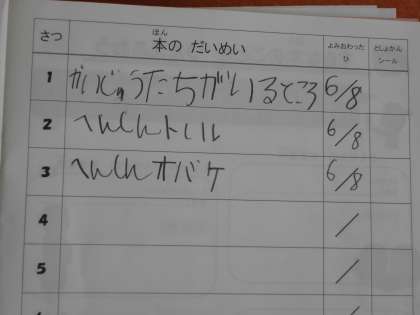 さつ 本のだいめい よみおわったひ としょかんシール
ほん
1 かいじゅうたちがいるところ 6/8
2 へんしんトイレ 6/8
3 へんしんオバケ 6/8
4 /
5 /